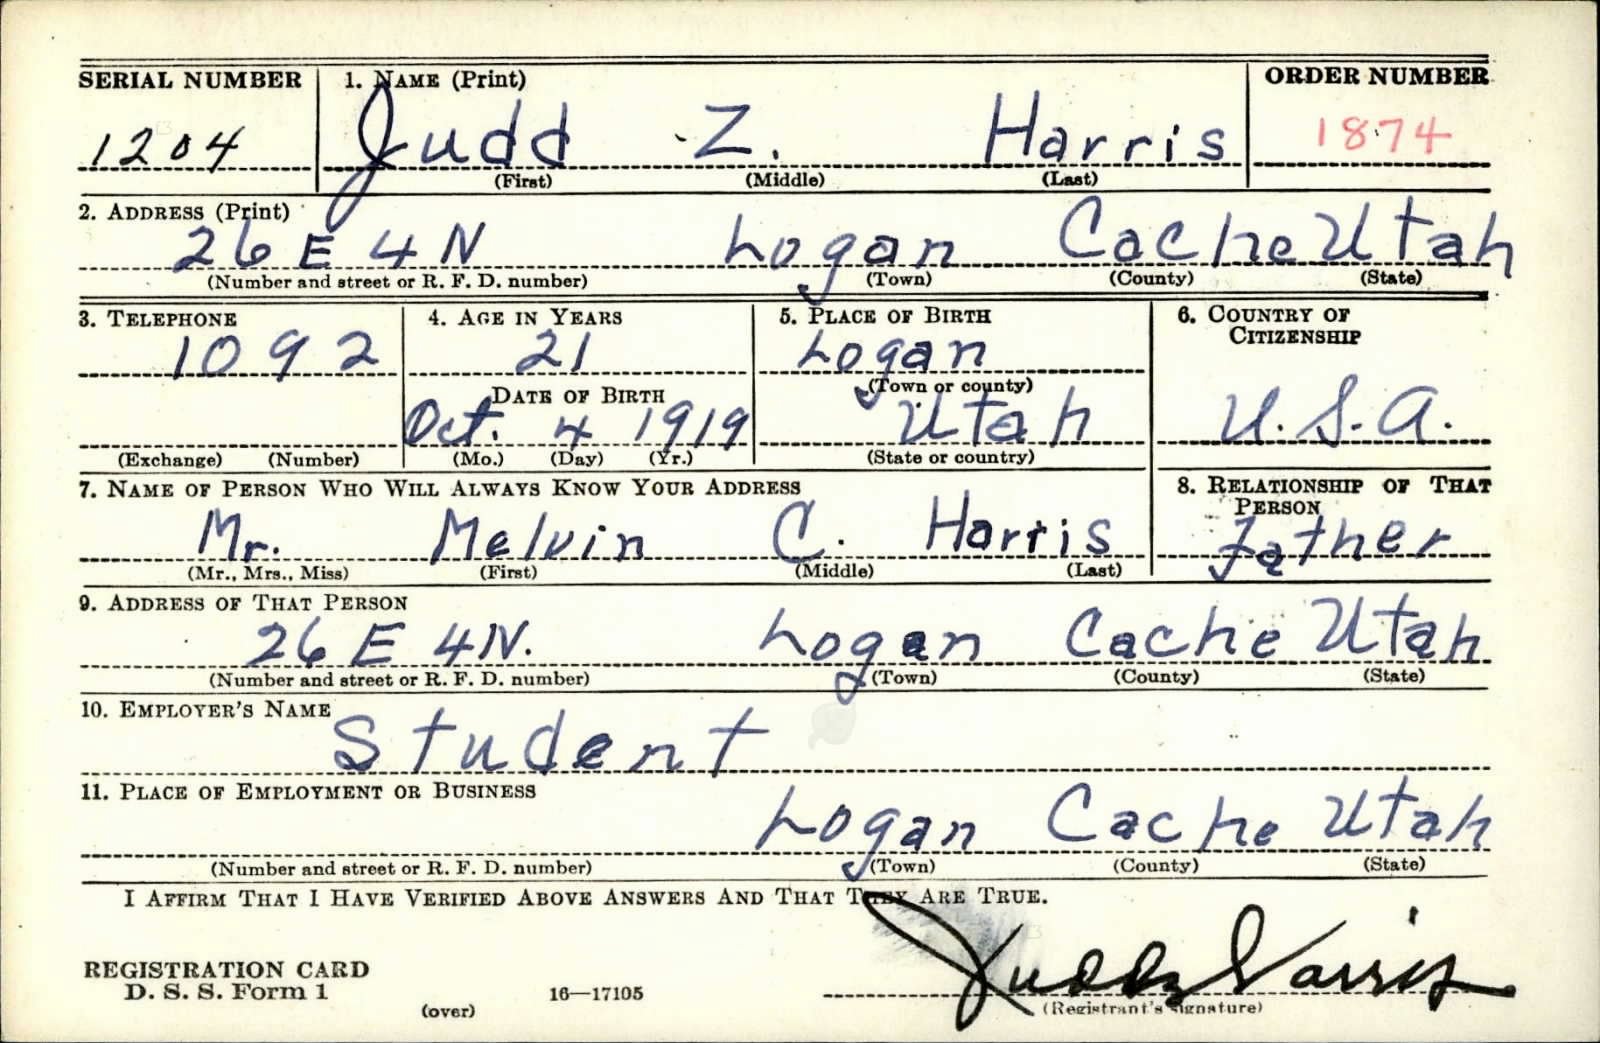 SERIAL NUMBER 1. NAME (Print) ORDER NUMBER
1204 Judd Z. Harris 1874
(First) (Middle) (Last)
2. ADDRESS (Print)
26 E 4 N Logan Cache Utah
(Number and street or R. F. D. number) (Town) (County) (State)
3. TELEPHONE 4. AGE IN YEARS 5. PLACE OF BIRTH 6. COUNTRY OF CITIZENSHIP
1092 21 Logan
(Town or county)
DATE OF BIRTH
Oct. 4 1919 Utah U.S.A.
(Exchange) (Number) (Mo.) (Day) (Yr.) (State or country)
7. NAME OF PERSON WHO WILL ALWAYS KNOW YOUR ADDRESS 8. RELATIONSHIP OF THAT PERSON
Mr. Melvin C. Harris Father
(Mr., Mrs., Miss) (First) (Middle) (Last)
9. ADDRESS OF THAT PERSON
26 E 4N. Logan Cache Utah
(Number and street or R. F. D. number) (Town) (County) (State)
10. EMPLOYER'S NAME
Student
11. PLACE OF EMPLOYMENT OR BUSINESS
Logan Cache Utah
(Number and street or R. F. D. number) (Town) (County) (State)
I AFFIRM THAT I HAVE VERIFIED ABOVE ANSWERS AND THAT THEY ARE TRUE.
REGISTRATION CARD
D. S. S. Form 1 16—17105 Judd Z Harris
(over) (Registrant's signature)